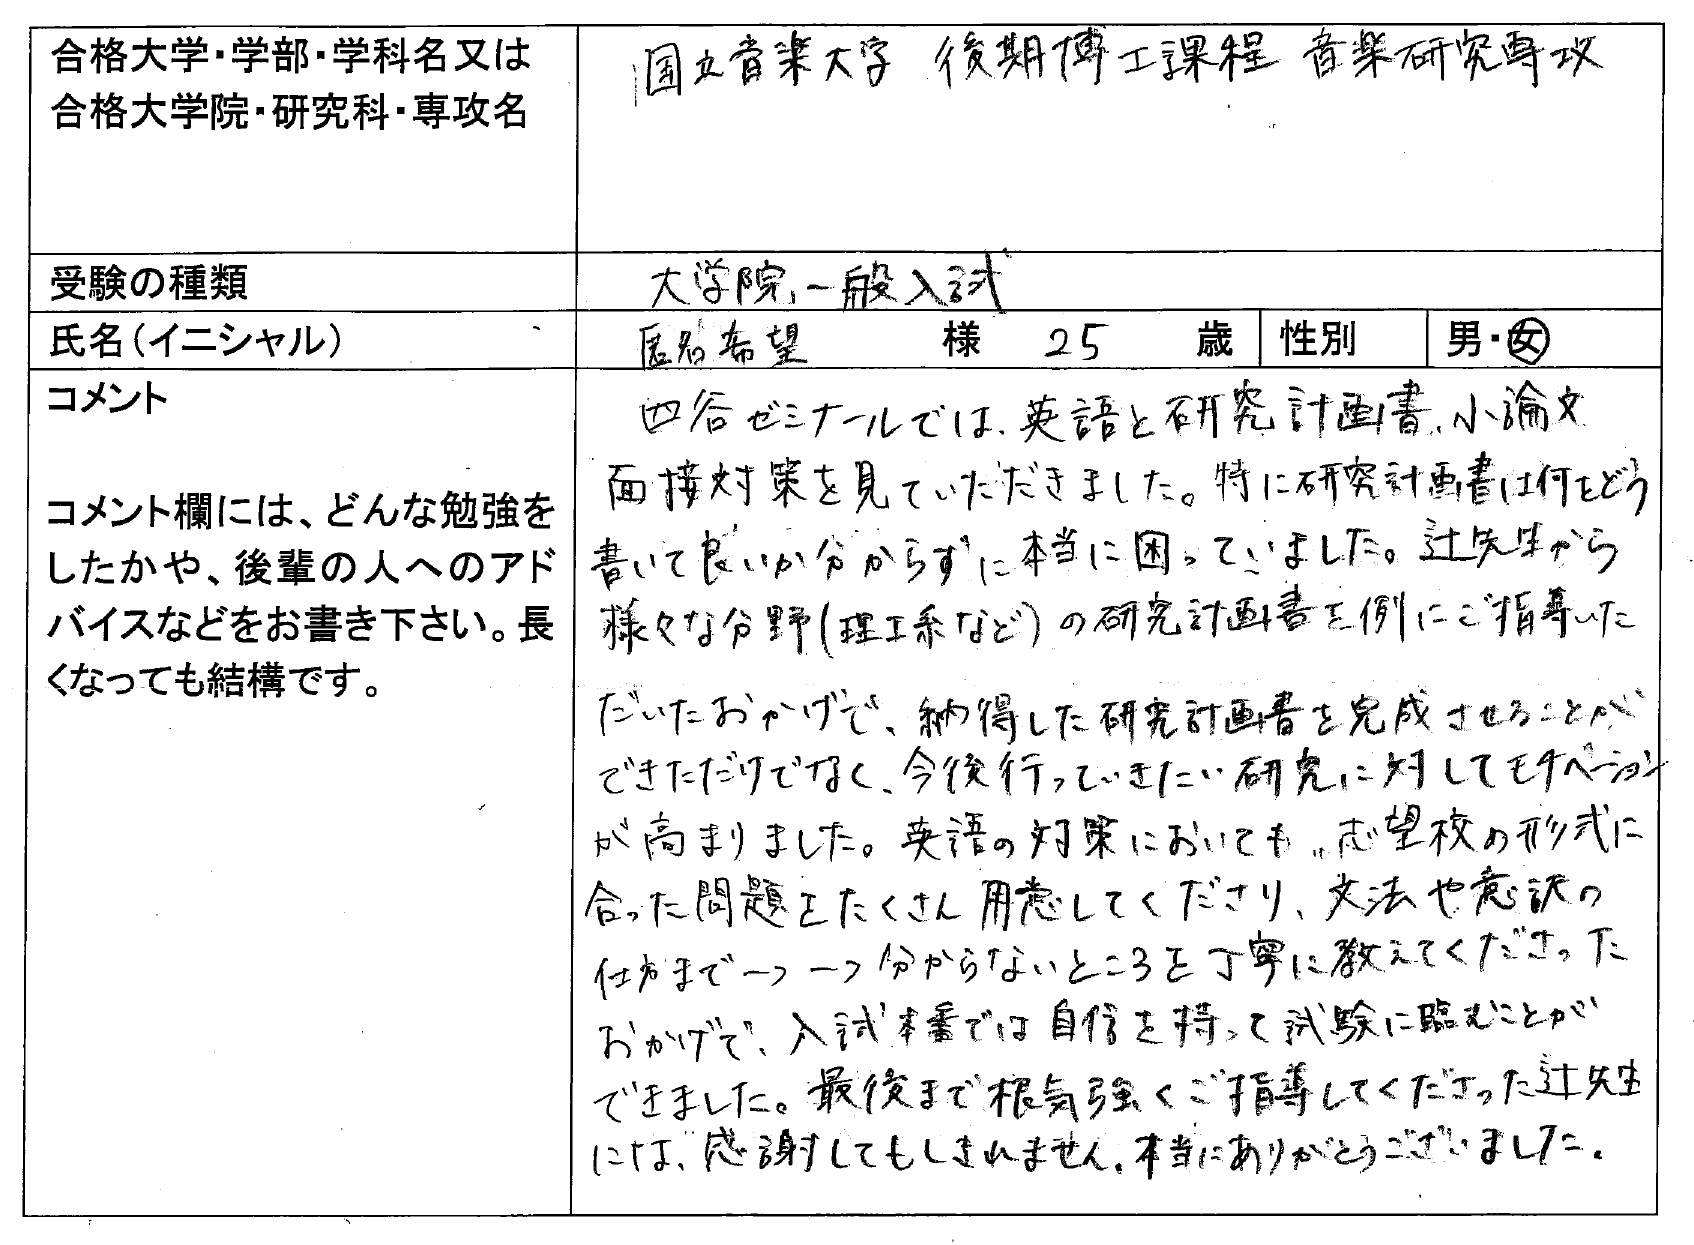 合格大学・学部・学科名又は
合格大学院・研究科・専攻名
国立音楽大学 後期博士課程 音楽研究専攻
受験の種類
大学院、一般入試
氏名(イニシャル)
匿名希望 様 25 歳 性別 男・女
コメント
コメント欄には、どんな勉強を
したかや、後輩の人へのアド
バイスなどをお書き下さい。長
くなっても結構です。
四谷ゼミナールでは、英語と研究計画書、小論文
面接対策を見ていただきました。特に研究計画書は何をどう
書いて良いか分からずに本当に困っていました。辻先生から
様々な分野(理工系など)の研究計画書を例にご指導いた
だいたおかげで、納得した研究計画書を完成させることが
できただけでなく、今後行っていきたい研究に対してモチベーション
が高まりました。英語の対策においても、志望校の形式に
合った問題をたくさん用意してくださり、文法や意訳の
仕方まで一つ一つ分からないところを丁寧に教えてくださった
おかげで、入試本番では自信を持って試験に臨むことが
できました。最後まで根気強くご指導してくださった辻先生
には、感謝してもしきれません。本当にありがとうございました。